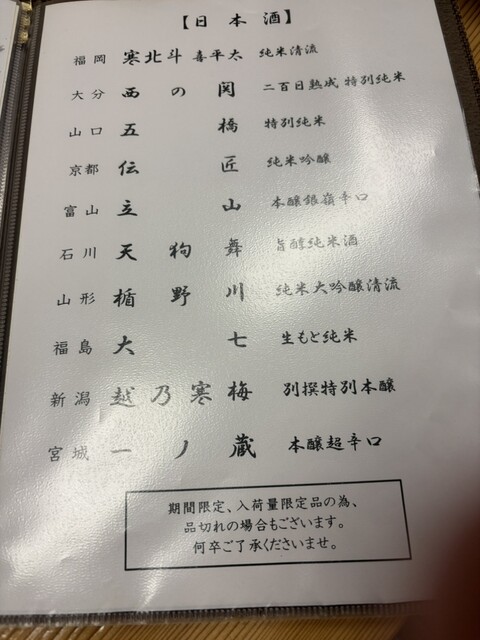 【日本酒】
福岡 寒北斗 喜平太 純米清流
大分 西の関 二百日熟成 特別純米
山口 五橋 特別純米
京都 伝匠 純米吟醸
富山 立山 本醸銀嶺辛口
石川 天狗舞 旨醇純米酒
山形 楯野川 純米大吟醸清流
福島 大七 生もと純米
新潟 越乃寒梅 別撰特別本醸
宮城 一ノ蔵 本醸超辛口
期間限定、入荷量限定品の為、
品切れの場合もございます。
何卒ご了承くださいませ。